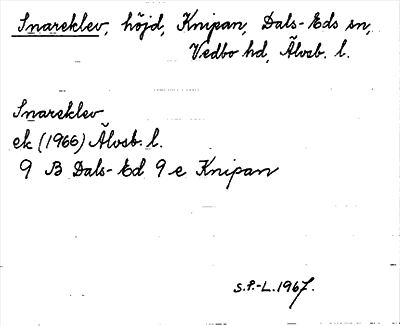 Snareklev, höjd, Knipan, Dals-Eds sn,
Vedbo hd, Älvsb. l.
Snareklev
ek (1966) Älvsb. l.
9 B Dals-Ed 9 e Knipan
S.F.-L. 1967.